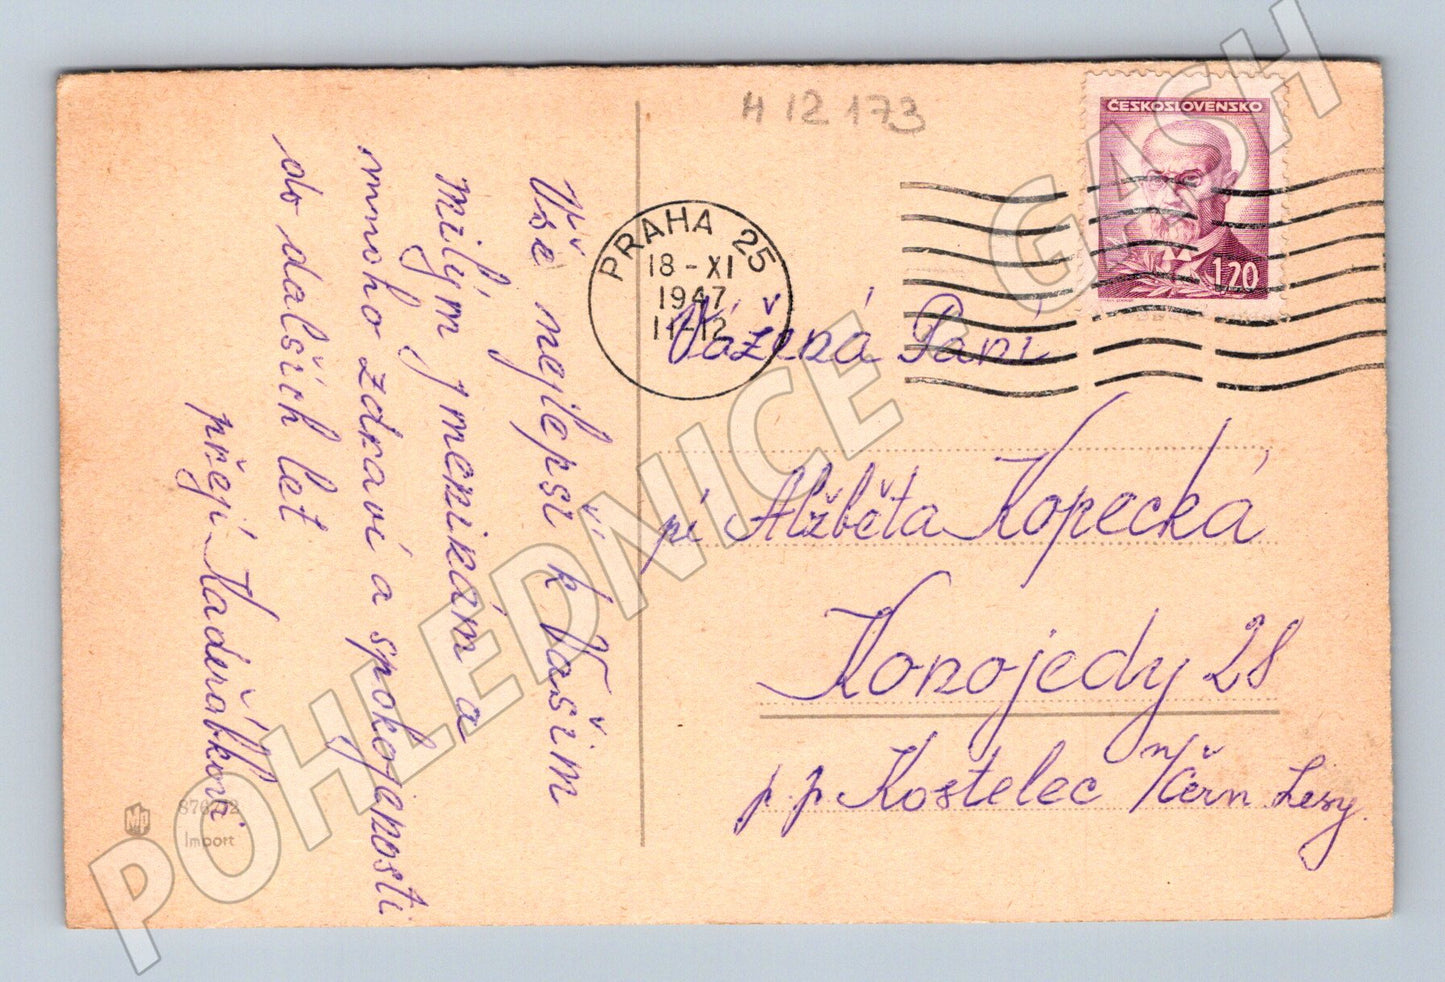 H 12 173
ČESKOSLOVENSKO
1.20
PRAHA 25
18-XI
1947
11-12
Vážená Paní
pí Alžběta Kopecká
Konojedy 28
p. p. Kostelec n/Čern Lesy.
Vše nejlepší k Vašim
milým jmeninám a
mnoho zdraví a spokojenosti
do dalších let
přejí Kadeřábkovi
Import
POHLEDNICE - GASH